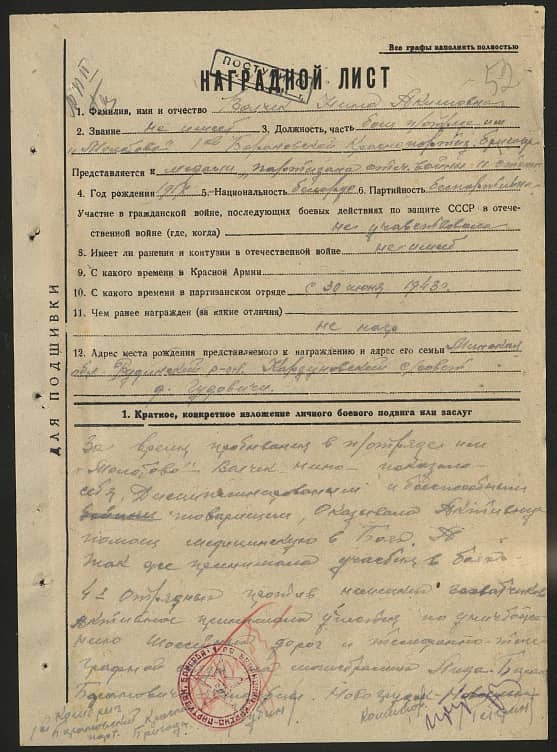 Все графы заполнить полностью
ПОСТУП
52
НАГРАДНОЙ ЛИСТ
1. Фамилия, имя и отчество Волчек Нина Акимовна
2. Звание не имеет 3. Должность, часть боец п/отряда им
Молотова 1ой Барановской Краснопартиз. Бригады
Представляется к медали "партизана отеч. войны II степени
4. Год рождения 5. Национальность белорус 6. Партийность беспартийная
Участие в гражданской войне, последующих боевых действиях по защите СССР в отече-
ственной войне (где, когда) не участвовала
8. Имеет ли ранения и контузии в отечественной войне не имеет
9. С какого времени в Красной Армии
10. С какого времени в партизанском отряде с 30 июня 1943 г.
11. Чем ранее награжден (за какие отличия)
не наго
12. Адрес места рождения представляемого к награждению и адрес его семьи Минская
обл. Руденский р-он, с/совет
д. Гудовичи
ДЛЯ ПОДШИВКИ
1. Краткое, конкретное изложение личного боевого подвига или заслуг
За время пребывания в п/отряде им
"Молотова" Волчек Нина показала
себя, Дисциплинированным и боеспособным
товарищем, Оказывала Активную
помощь медицинскую в Боях.
Так же принимала участие в боях
4х Отрядных против немецких захватчиков
Активное принимала участие по уничтоже-
нию Шоссейных дорог и телефонно-теле-
графной
Барановичи